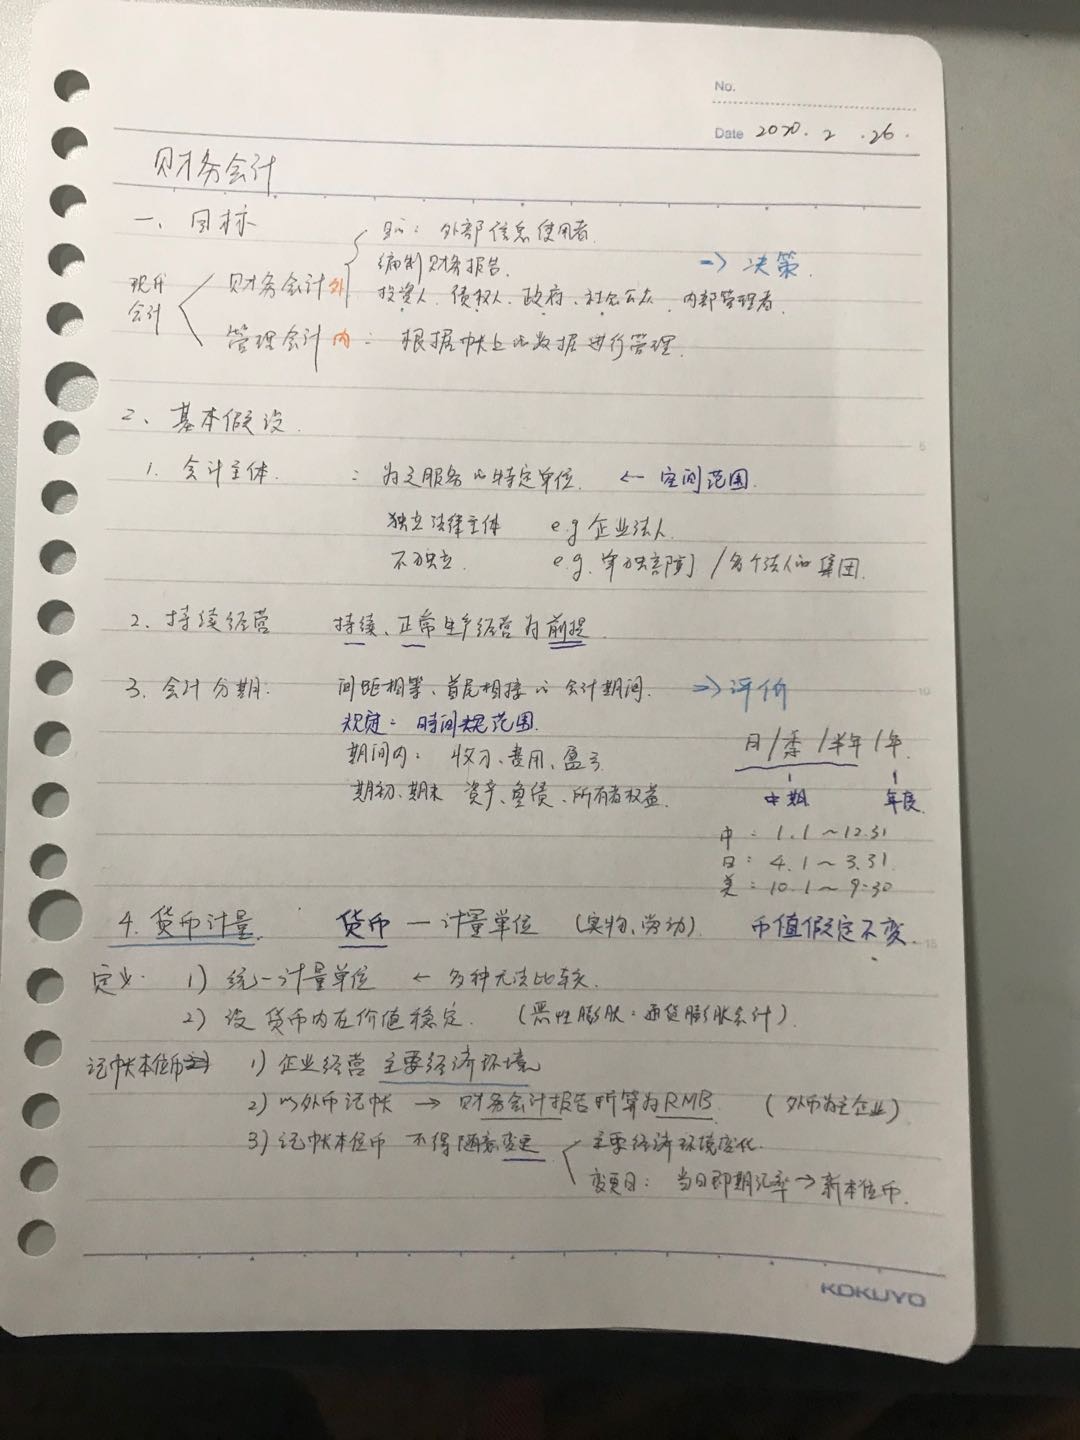 No.
Date 2020. 2 .26.
财务会计
一、目标
现代会计
财务会计 外
：外部信息使用者.
编制财务报告.
投资人、债权人、政府、社会公众、内部管理者.
=> 决策.
管理会计 内：根据帐上的数据进行管理.
2、基本假设.
1. 会计主体. ：为之服务的特定单位. ← 空间范围.
独立法律主体 e.g 企业法人.
不独立. e.g. 单独部门/多个法人的集团.
2. 持续经营 持续、正常生产经营为前提.
3. 会计分期: 间距相等、首尾相接的会计期间. => 评价
规定：时间范围.
期间内：收入、费用、盈亏
期初、期末 资产、负债、所有者权益.
月/季/半年/年.
中期. 年度.
中：1.1～12.31
日：4.1～3.31.
美：10.1～9.30
4. 货币计量. 货币 — 计量单位 (实物、劳动). 币值假定不变.
定义. 1) 统一计量单位 ← 多种无法比较.
2) 设货币内在价值稳定. (恶性膨胀：通货膨胀会计).
记帐本位币 1) 企业经营主要经济环境
2) 以外币记帐 → 财务会计报告折算为RMB. (外币为主企业)
3) 记帐本位币 不得随意变更
主要经济环境变化.
变更日：当日即期汇率→新本位币.
5
10
15
KOKUYO